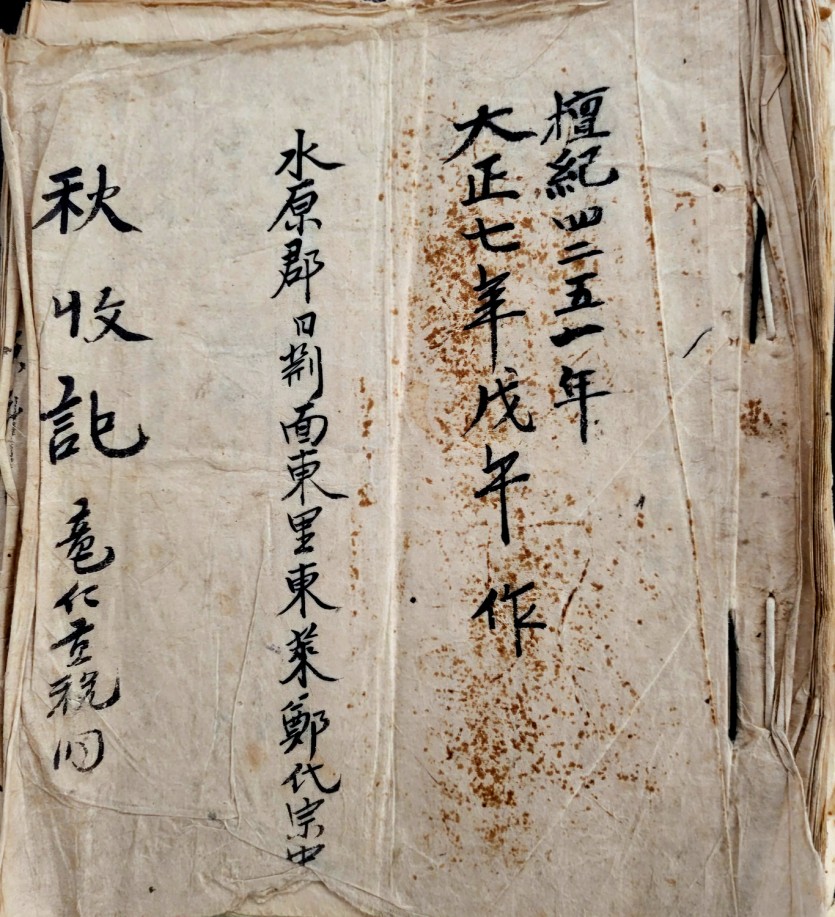 檀紀四二五一年
大正七年戊午 作
水原郡日荆面東里東萊鄭代宗中
秋收記 竜仁